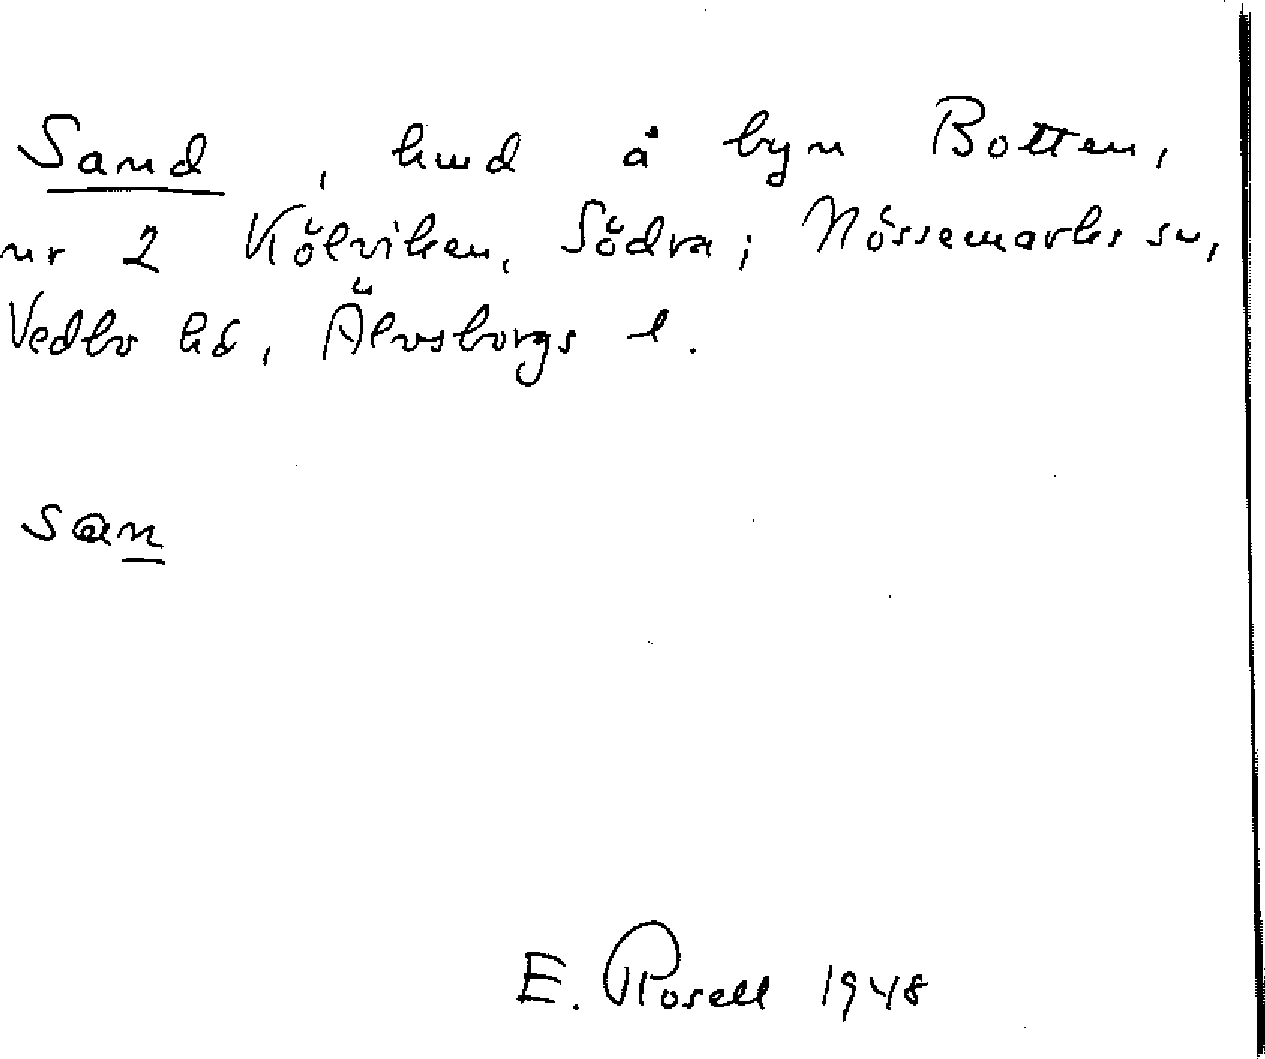 Sand, hmd å byn Botten,
nr 2 Kölviken, Södra; Nössemarks sn,
Vedbo hd, Älvsborgs l.
san
E. Rosell 1948